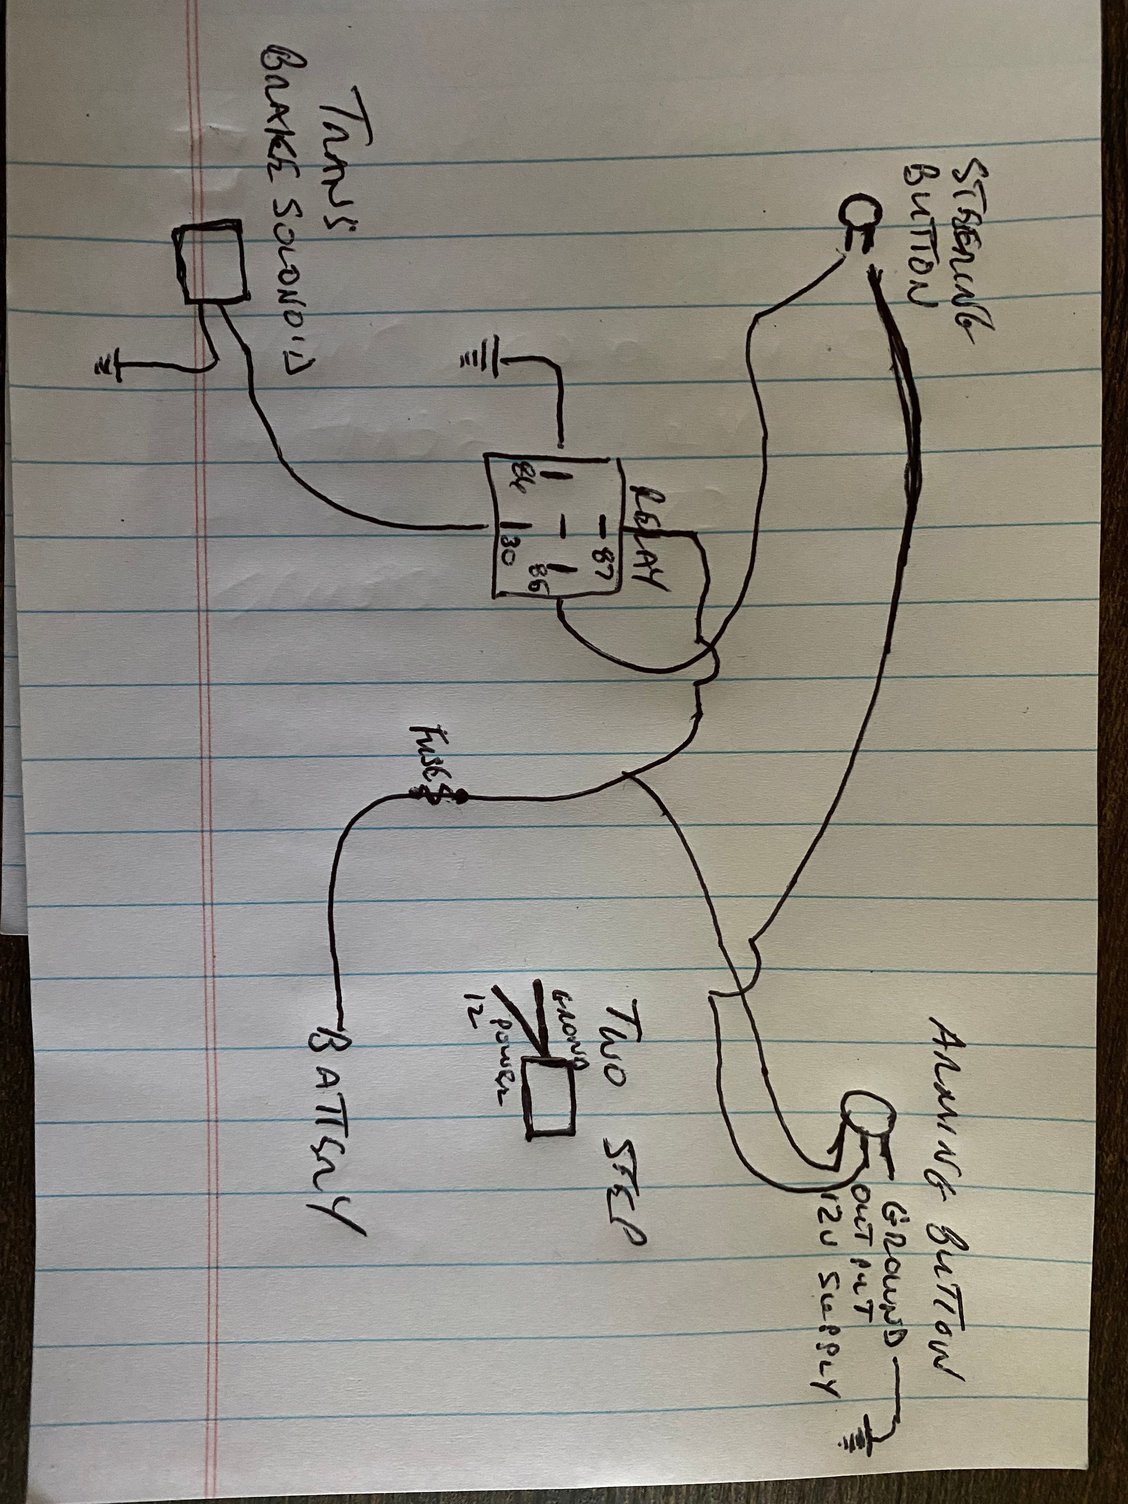 STEERING
BUTTON
ARMING BUTTON
GROUND
OUTPUT
12V SUPPLY
RELAY
87
86
30
TWO STEP
GROND
POWER
12
FUSE
TRANS
BRAKE SOLONOID
BATTERY